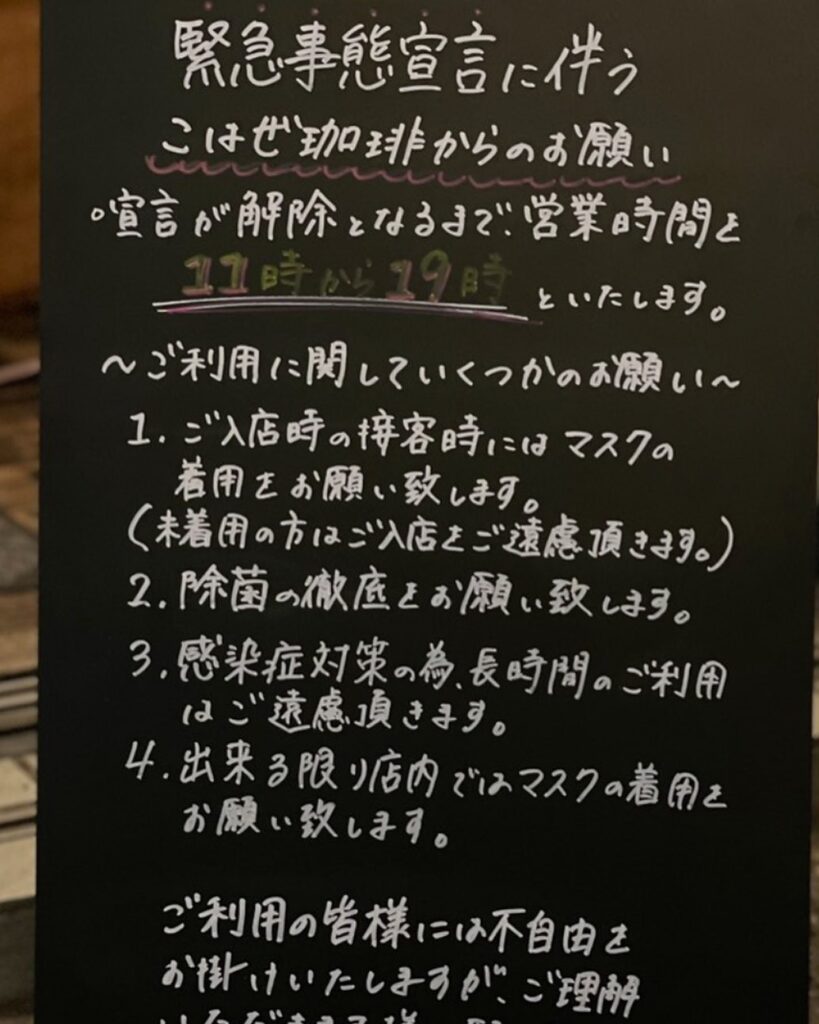 緊急事態宣言に伴う
こはぜ珈琲からのお願い
。宣言が解除となるまで、営業時間を
11時から19時といたします。
~ご利用に関していくつかのお願い~
1. ご入店時の接客時にはマスクの
着用をお願い致します。
(未着用の方はご入店をご遠慮頂きます。)
2. 除菌の徹底をお願い致します。
3. 感染症対策の為、長時間のご利用
はご遠慮頂きます。
4. 出来る限り店内ではマスクの着用を
お願い致します。
ご利用の皆様には不自由を
お掛けいたしますが、ご理解